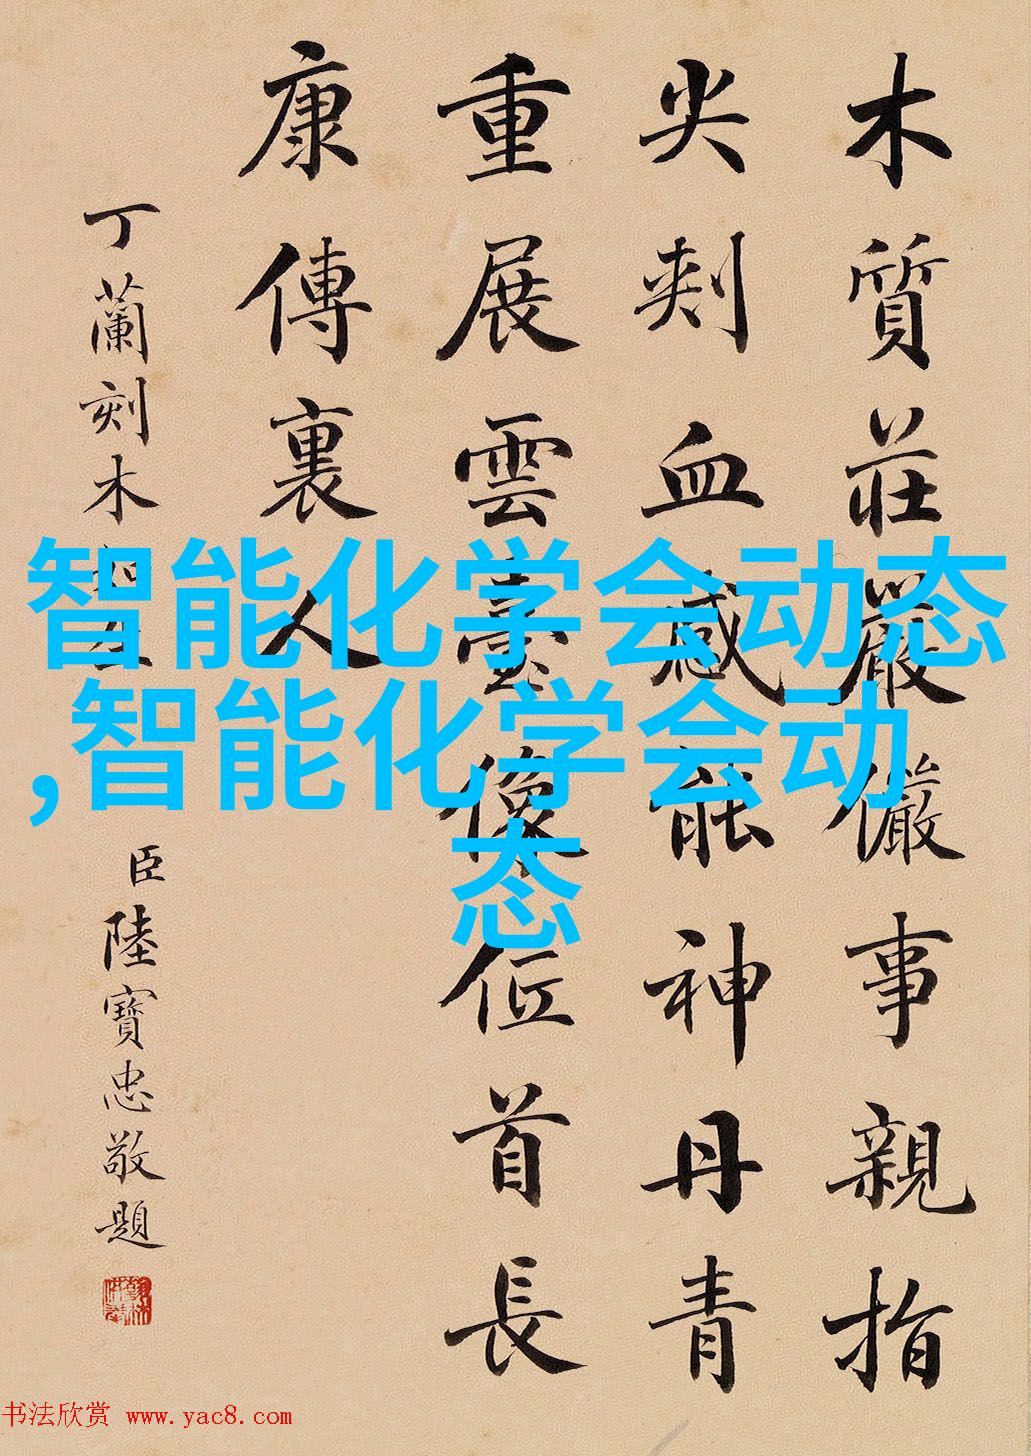 木質莊嚴儼事親指
尖刾血感能神丹青
重展雲臺像位首長
康傳裏人
丁蘭刻木
臣陸寶忠敬題
智能化学会动态
,智能化学会动
态
书法欣赏 www.yac8.com